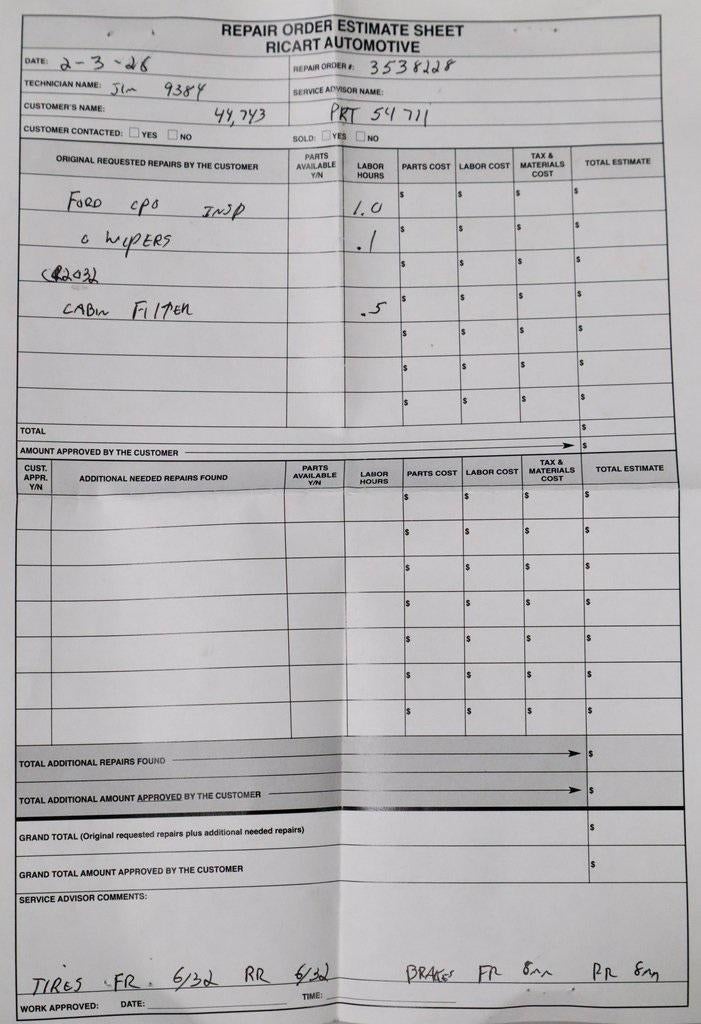 REPAIR ORDER ESTIMATE SHEET
RICART AUTOMOTIVE
DATE: 2-3-26 REPAIR ORDER #: 3538228
TECHNICIAN NAME: Jim 9384 SERVICE ADVISOR NAME:
CUSTOMER'S NAME: 44,743 PRT 54711
CUSTOMER CONTACTED: YES NO SOLD: YES NO
ORIGINAL REQUESTED REPAIRS BY THE CUSTOMER PARTS AVAILABLE Y/N LABOR HOURS PARTS COST LABOR COST TAX & MATERIALS COST TOTAL ESTIMATE
FORD CPO INSP 1.0 $ $ $ $
WIPERS .1 $ $ $ $
CR2032 $ $ $ $
CABIN FILTER .5 $ $ $ $
$ $ $ $
$ $ $ $
$ $ $ $
TOTAL $
AMOUNT APPROVED BY THE CUSTOMER $
CUST. APPR. Y/N ADDITIONAL NEEDED REPAIRS FOUND PARTS AVAILABLE Y/N LABOR HOURS PARTS COST LABOR COST TAX & MATERIALS COST TOTAL ESTIMATE
$ $ $ $
$ $ $ $
$ $ $ $
$ $ $ $
$ $ $ $
$ $ $ $
$ $ $ $
TOTAL ADDITIONAL REPAIRS FOUND $
TOTAL ADDITIONAL AMOUNT APPROVED BY THE CUSTOMER $
GRAND TOTAL (Original requested repairs plus additional needed repairs) $
GRAND TOTAL AMOUNT APPROVED BY THE CUSTOMER $
SERVICE ADVISOR COMMENTS:
TIRES FR 6/32 RR 6/32 BRAKES FR 8mm RR 8mm
WORK APPROVED: DATE: TIME: